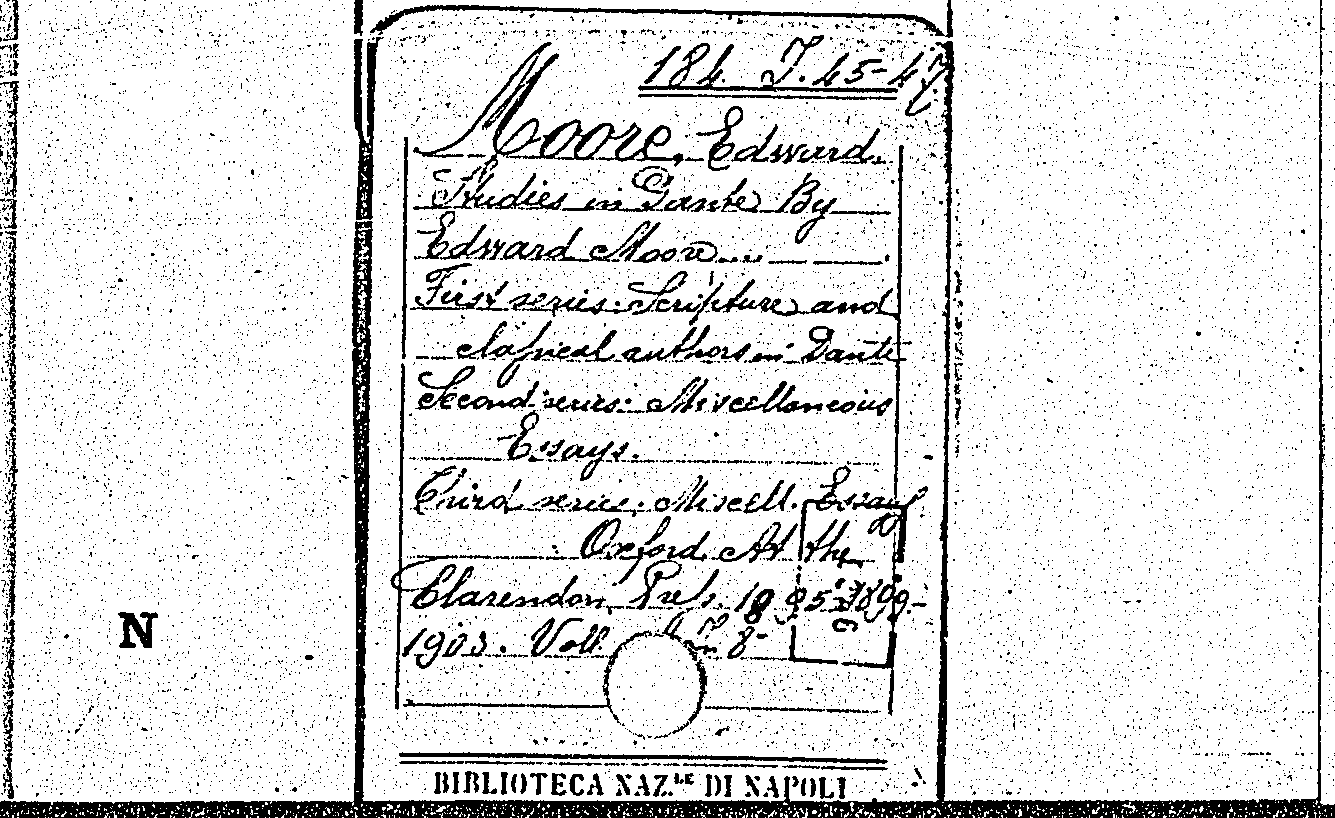 184 J. 45-47
Moore, Edward.
Studies in Dante By
Edward Moore....
First series: Scripture and
classical authors in Dante
Second series: Miscellaneous
Essays.
Third series: Miscell. Essays
Oxford At the
Clarendon Press. 1895-1899-
1903. Voll. in 8-
N
BIBLIOTECA NAZ.LE DI NAPOLI